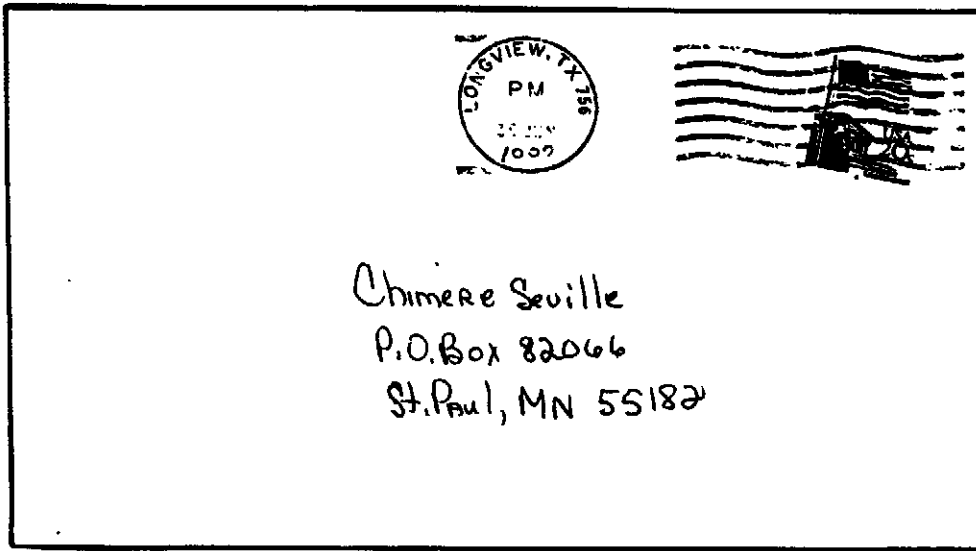 LONGVIEW, TX 756
PM
USA
20c
Chimere Seville
P.O. Box 82066
St. Paul, MN 55182